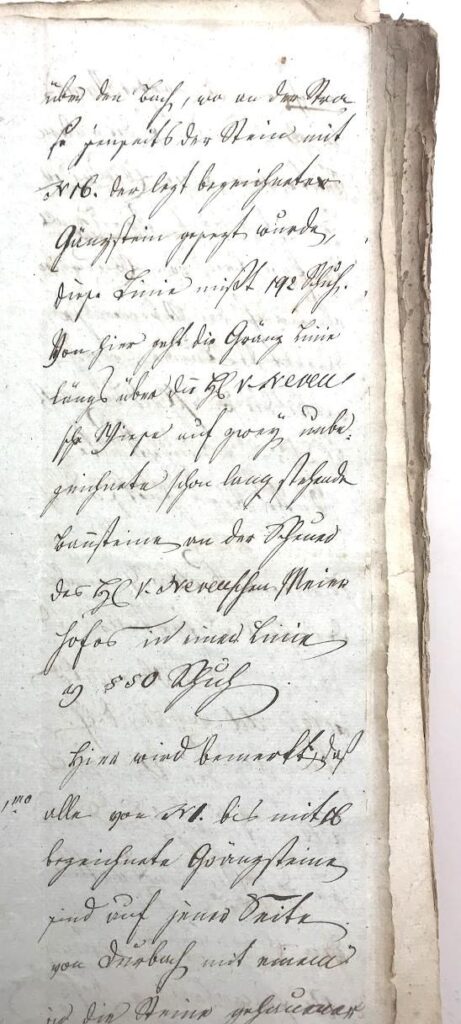 über den Bach, wo an der Stra
ße jenseits der Stein mit
N16. der lezt bezeichnete
Gänzstein gesezt wurde,
diese Linie mißt 192 Schuh.
Von hier geht die Gränz Linie
längs über die H v. Neven
sche Wiese auf zwey unbe-
zeichnete schon lang stehende
Bannsteine an der Scheuer
des H v. Nevenschen Meier
hofes in einer Linie
ad 850 Schuh
Hier wird bemerkt, daß
1mo alle von N1. bis mit 16
bezeichnete Gränzsteine
sind auf jener Seite
von Durbach mit einem
in die Steine gehauenen